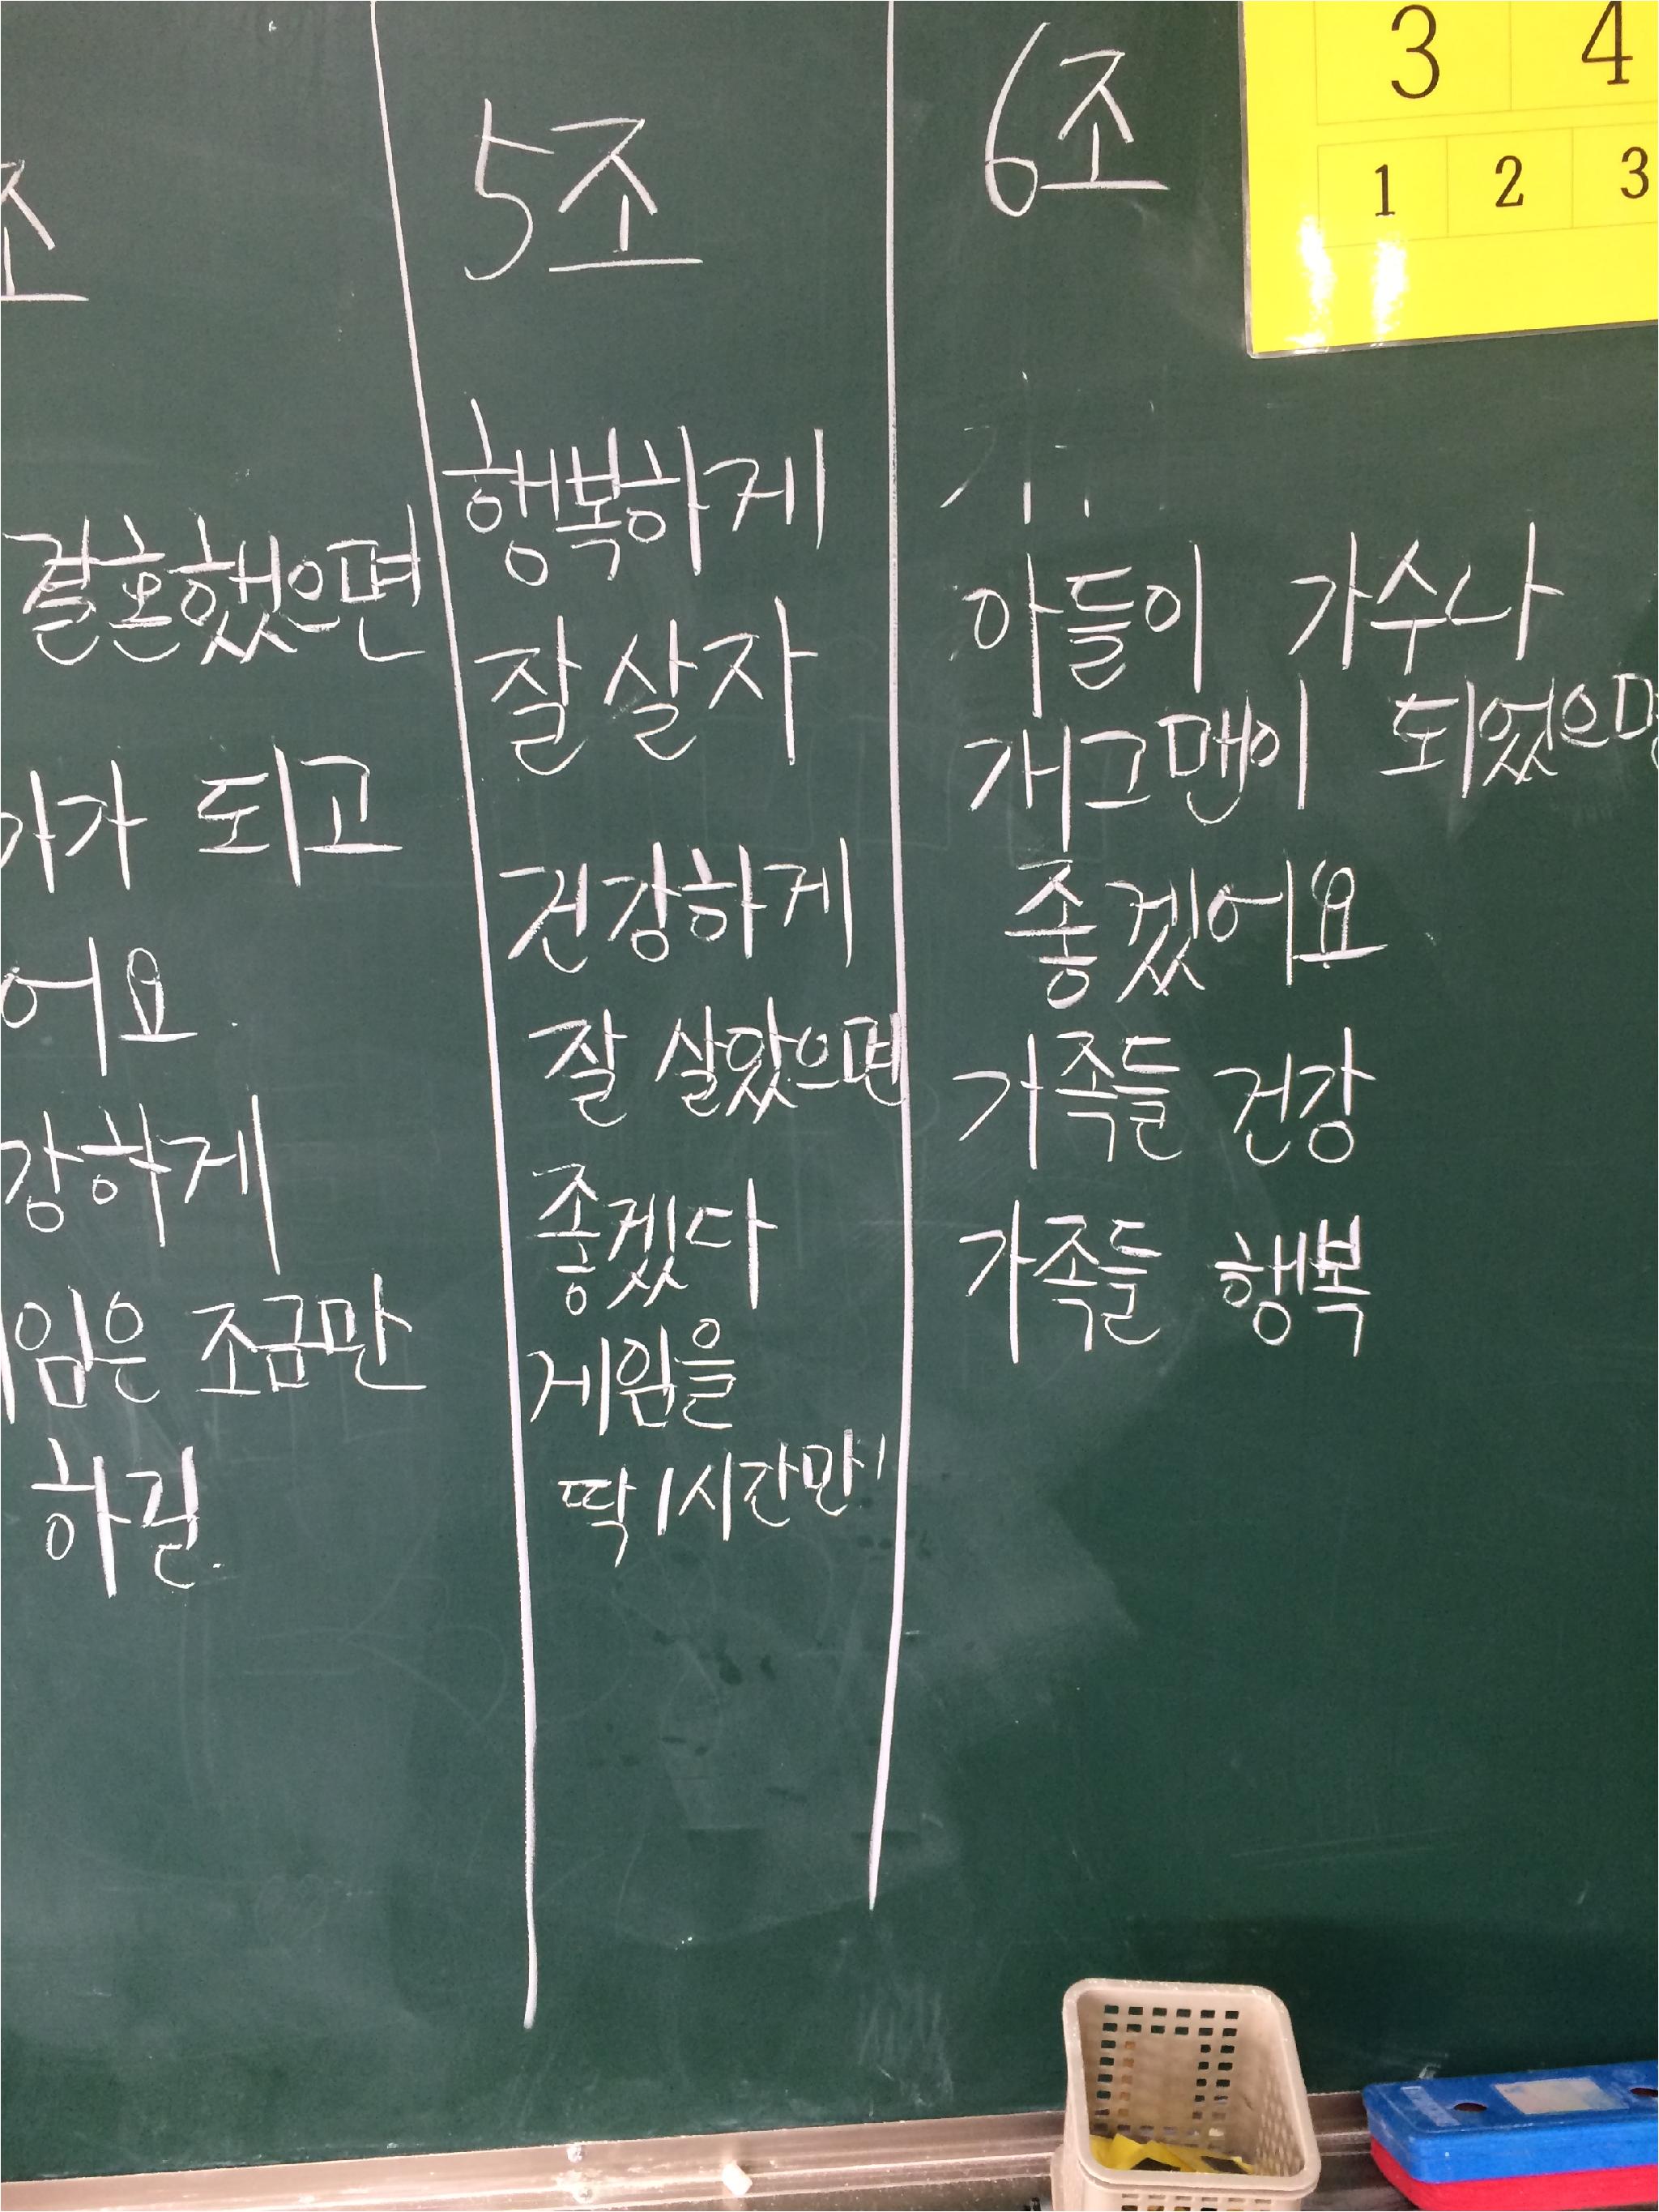 조
결혼했으면
가가 되고
어요.
강하게
임은 조금만
하길.
5조
행복하게
잘 살자
건강하게
잘 살았으면
좋겠다
게임을
딱 1시간만!
6조
아들이 가수나
개그맨이 되었으면
좋겠어요
가족들 건강
가족들 행복
3 4
1 2 3